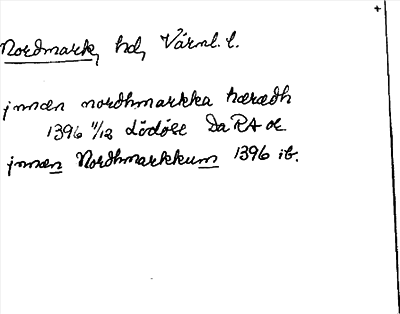 Nordmark, hd, Värml. l.
jnnæn nordhmarkka hærædh
1396 11/12 Lödöse DaRA or.
jnnæn Nordhmarkkum 1396 ib.